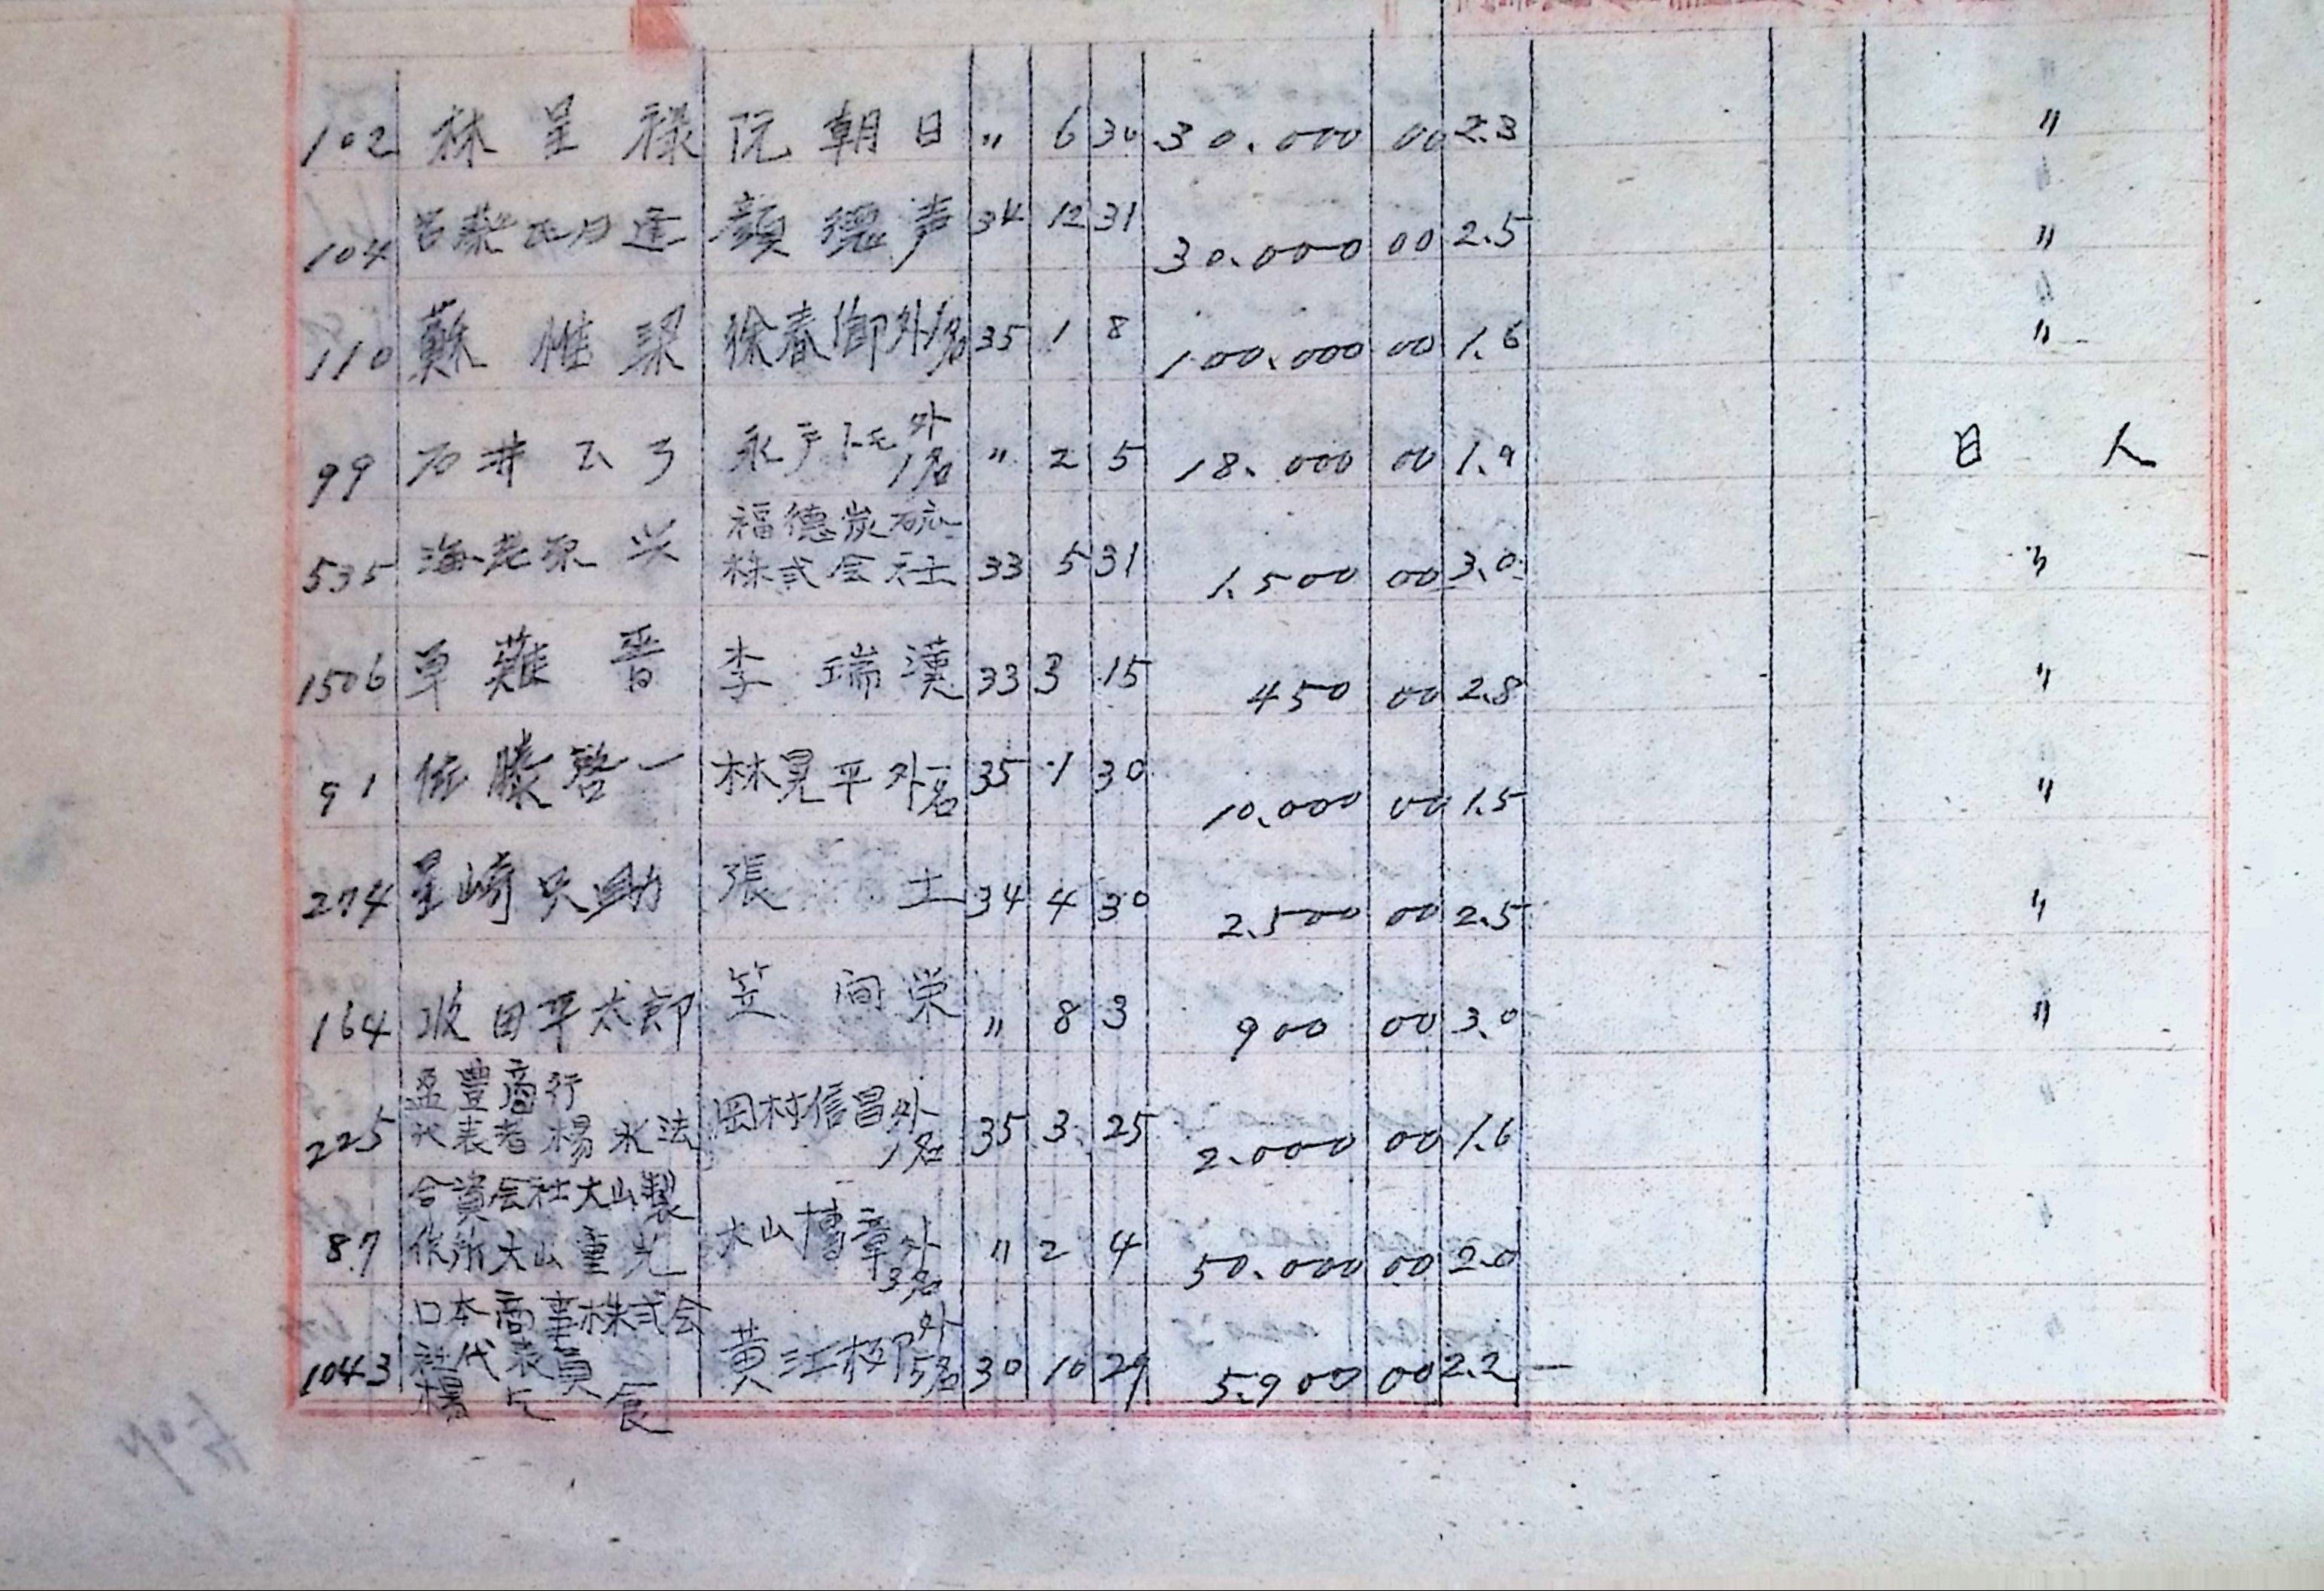 102 林呈祿 阮朝日 〃 6 30 30.000 00 2.3 〃
104 顏德声 34 12 31 30.000 00 2.5 〃
110 蘇惟梁 徐春御外1名 35 1 8 100.000 00 1.6 〃
99 石井 外1名 〃 2 5 18.000 00 1.9 日人
535 海老原兴 福德炭砿
株式会社 33 5 31 1.500 00 3.0 〃
1506 草薙晋 李瑞漢 33 3 15 450 00 2.8 〃
91 佐藤啓一 林晃平外一名 35 1 30 10.000 00 1.5 〃
274 星崎 助 張士 34 4 30 2.500 00 2.5 〃
164 田平太郎 笠间栄 〃 8 3 900 00 3.0 〃
盈豊商行
225 代表者楊永法 岡村信昌外1名 35 3 25 2.000 00 1.6
合資会社大山製
87 作所大山重光 大山博章外3名 〃 2 4 50.000 00 2.0
口本商事株式会
1043 社代表員 黄江柳外5名 30 10 29 5.900 00 2.2 一
楊